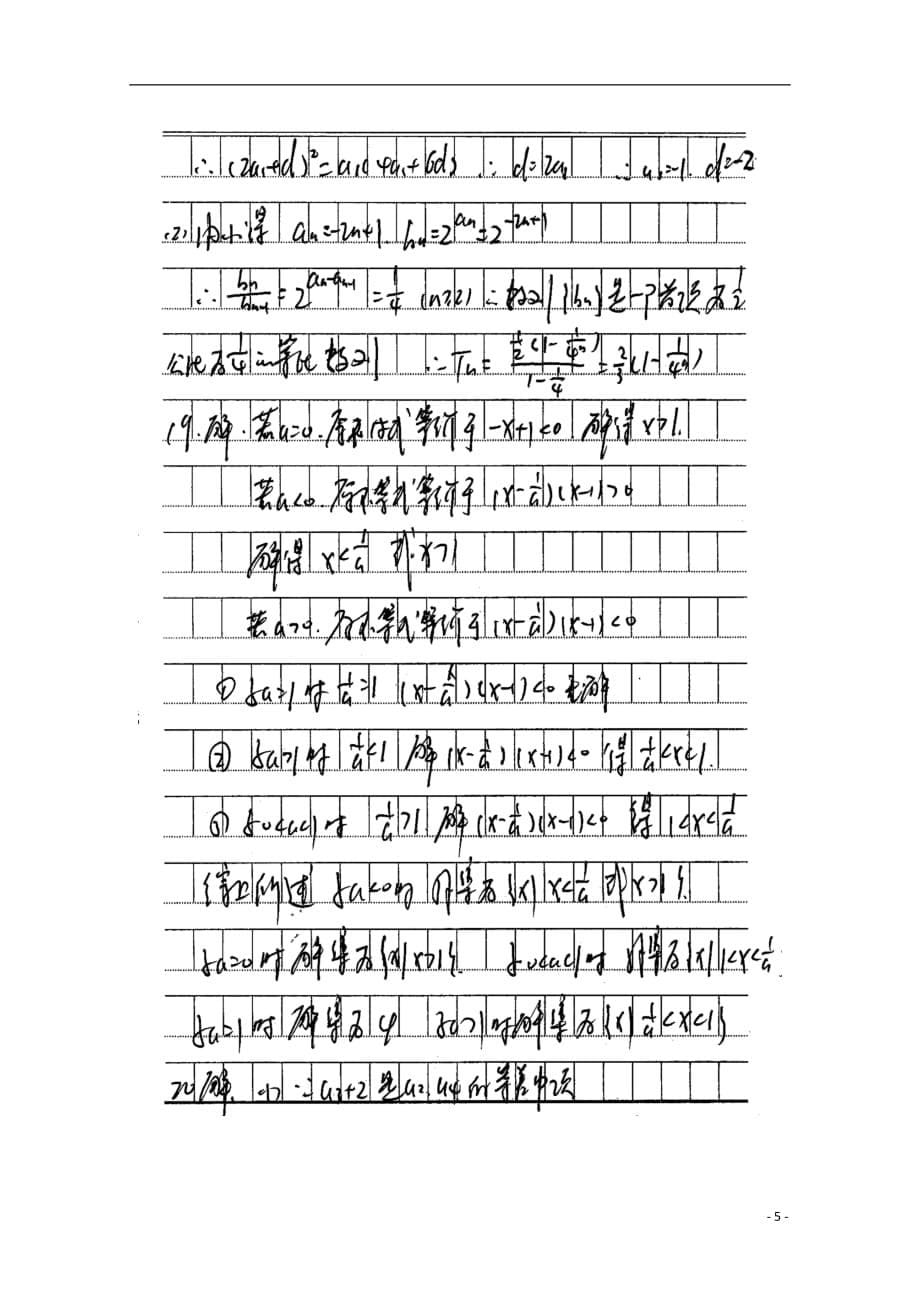 ∴ (2a₁+d)²=a₁(4a₁+6d) ∴ d=2a₁ ∴ a₁=-1. d=-2
(2) 由(1)得 aₙ=-2n+1. bₙ=2^{aₙ}=2^{-2n+1}
∴ bₙ/bₙ₋₁=2^{aₙ-aₙ₋₁}=1/4 (n≥2) ∴ 数列{bₙ}是一个首项为1/2
公比为1/4的等比数列 ∴Tₙ= (1/2(1-1/4ⁿ))/(1-1/4) =2/3(1-1/4ⁿ)
19.解.若a=0.原不等式等价于-x+1<0 解得x>1.
若a<0.原不等式等价于(x-1/a)(x-1)>0
解得 x<1/a 或x>1
若a>0.原不等式等价于(x-1/a)(x-1)<0
① 当a=1时 1/a=1 (x-1/a)(x-1)<0无解
② 当a>1时 1/a<1 解(x-1/a)(x-1)<0 得1/a<x<1.
③ 当0<a<1时 1/a>1 解(x-1/a)(x-1)<0 得1<x<1/a
综上所述 当a<0时 解集为{x|x<1/a 或x>1}.
当a=0时 解集为{x|x>1}. 当0<a<1时 解集为{x|1<x<1/a
当a=1时 解集为φ 当a>1时解集为{x|1/a<x<1}
20解. (1) ∵a₃+2是a₂,a₄的等差中项
- 5 -